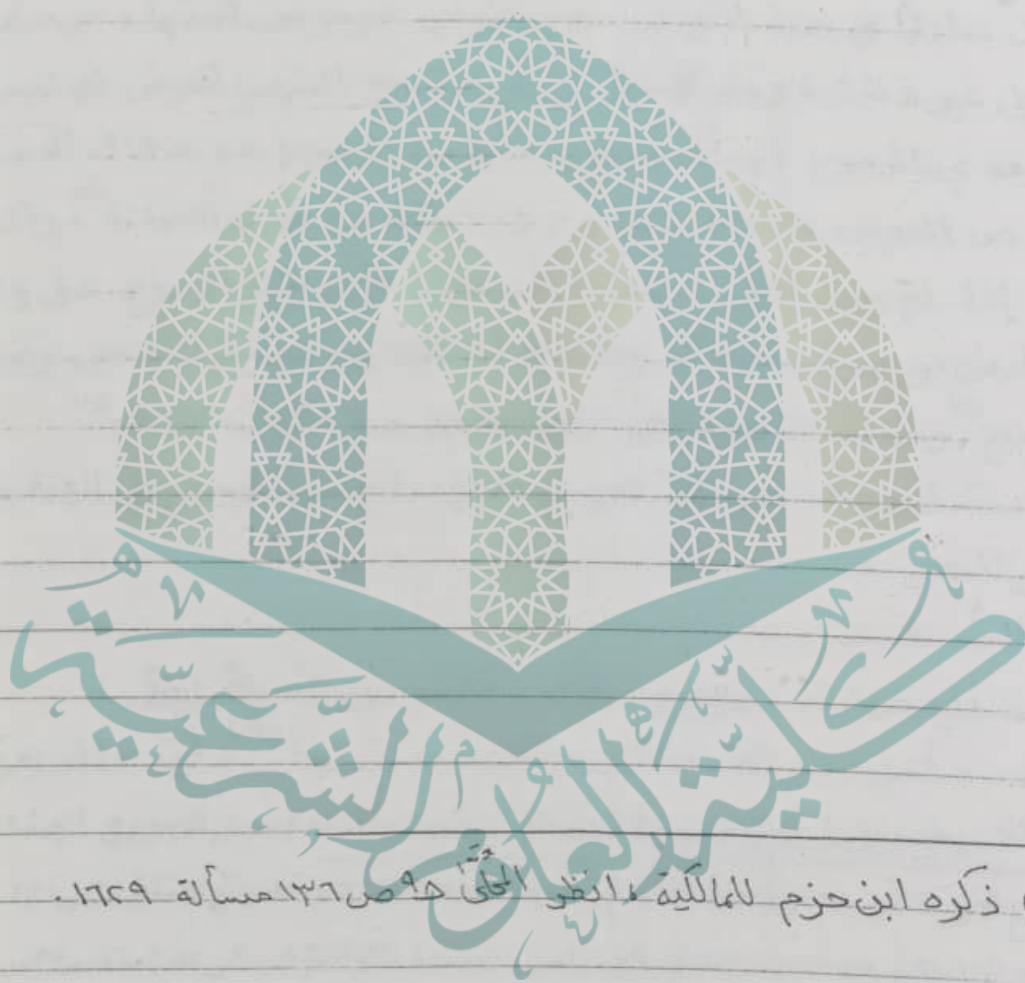 كلية العلوم الشرعية
ذكره ابن حزم للمالكية، انظر المحلّى جـ٩ ص١٣٦ مسألة ١٦٢٩.